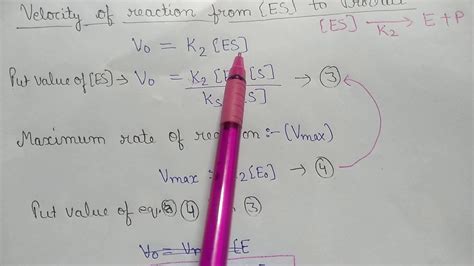 Velocity of reaction from [ES] to
[ES] → E + P
K2
V0 = K2 [ES]
Put value of [ES] → V0 = K2 [E [S] → ③
Ks [S]
Maximum rate of reaction :- (Vmax)
Vmax : 2[E0] → ④
Put value of eq. ④ ③
V0 = V [E